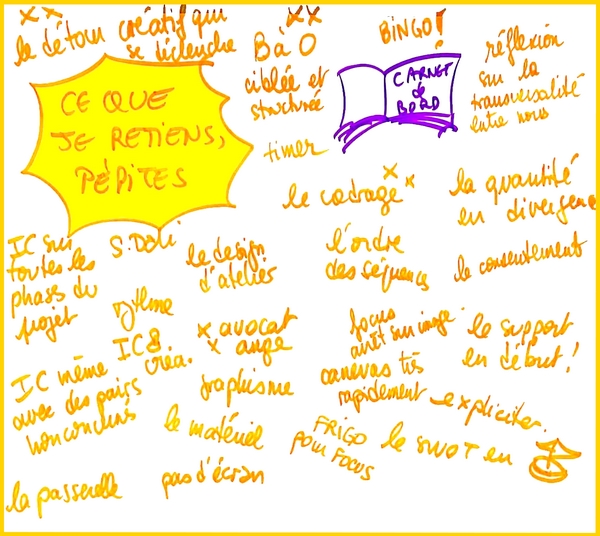 le détour créatif qui
se déclenche
CE QUE
JE RETIENS,
PÉPITES
B à O
ciblée et
structurée
timer
BINGO!
CARNET
de
BORD
réflexion
sur la
transversalité
entre nous
le cadrage
la quantité
en divergence
IC sur
toutes les
phases du
projet
S. Dali
le design
d'atelier
l'ordre
des séquences
le consentement
rythme
avocat
ange
focus
arrêt sur image
le support
en début!
IC même
avec des pairs
non conclus
IC &
créa.
graphisme
canevas très
rapidement
expliciter.
le matériel
FRIGO
POUR FOCUS
le SWOT en
la passerelle
pas d'écran